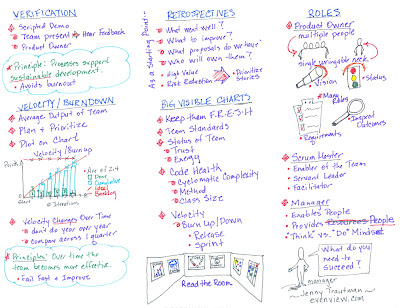 VERIFICATION
Scripted Demo
Team present → Hear Feedback
Product Owner
Principle: Processes support
sustainable development.
Avoids burnout
VELOCITY / BURNDOWN
Average Output of Team
Plan + Prioritize
Plot on Chart
Velocity/Burnup
Points
# Iterations
Done
Cumulative
Backlog
Velocity Changes Over Time
don't do year over year
Company across 1 quarter
Principles: Over time the
team becomes more effective.
Fail Fast + Improve
RETROSPECTIVES
As a Starting Point
What went well?
What to improve?
What proposals do we have?
Who will own them?
High Value
Risk Reduction
Prioritize
Stories
BIG VISIBLE CHARTS
Keep them F-R-E-S-H
Team Standards
Status of Team
Trust
Energy
Code Health
Cyclomatic Complexity
Method
Class Size
Velocity
Burn Up/Down
Release
Sprint
Read the Room
ROLES
Product Owner
multiple people
single wringable neck
Vision
Status
Many Roles
Requirements
Inspired
Outcomes
Scrum Master
Enabler of the Team
Servant Leader
Facilitator
Manager
Enables People
Provides Resources People
"Think" vs. "Do" Mindset
What do you
need to
succeed?
manager
Jenny Trautman
evenview.com